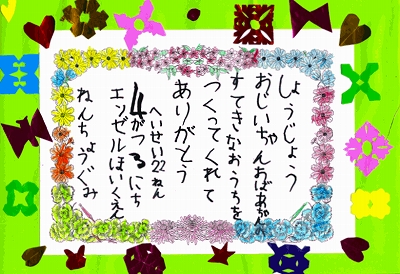 しょうじょう
おじいちゃんおばあちゃん
すてきなおうちを
つくってくれて
ありがとう
へいせい22ねん
4がつ3にち
エンゼルほいくえん
ねんちょうぐみ